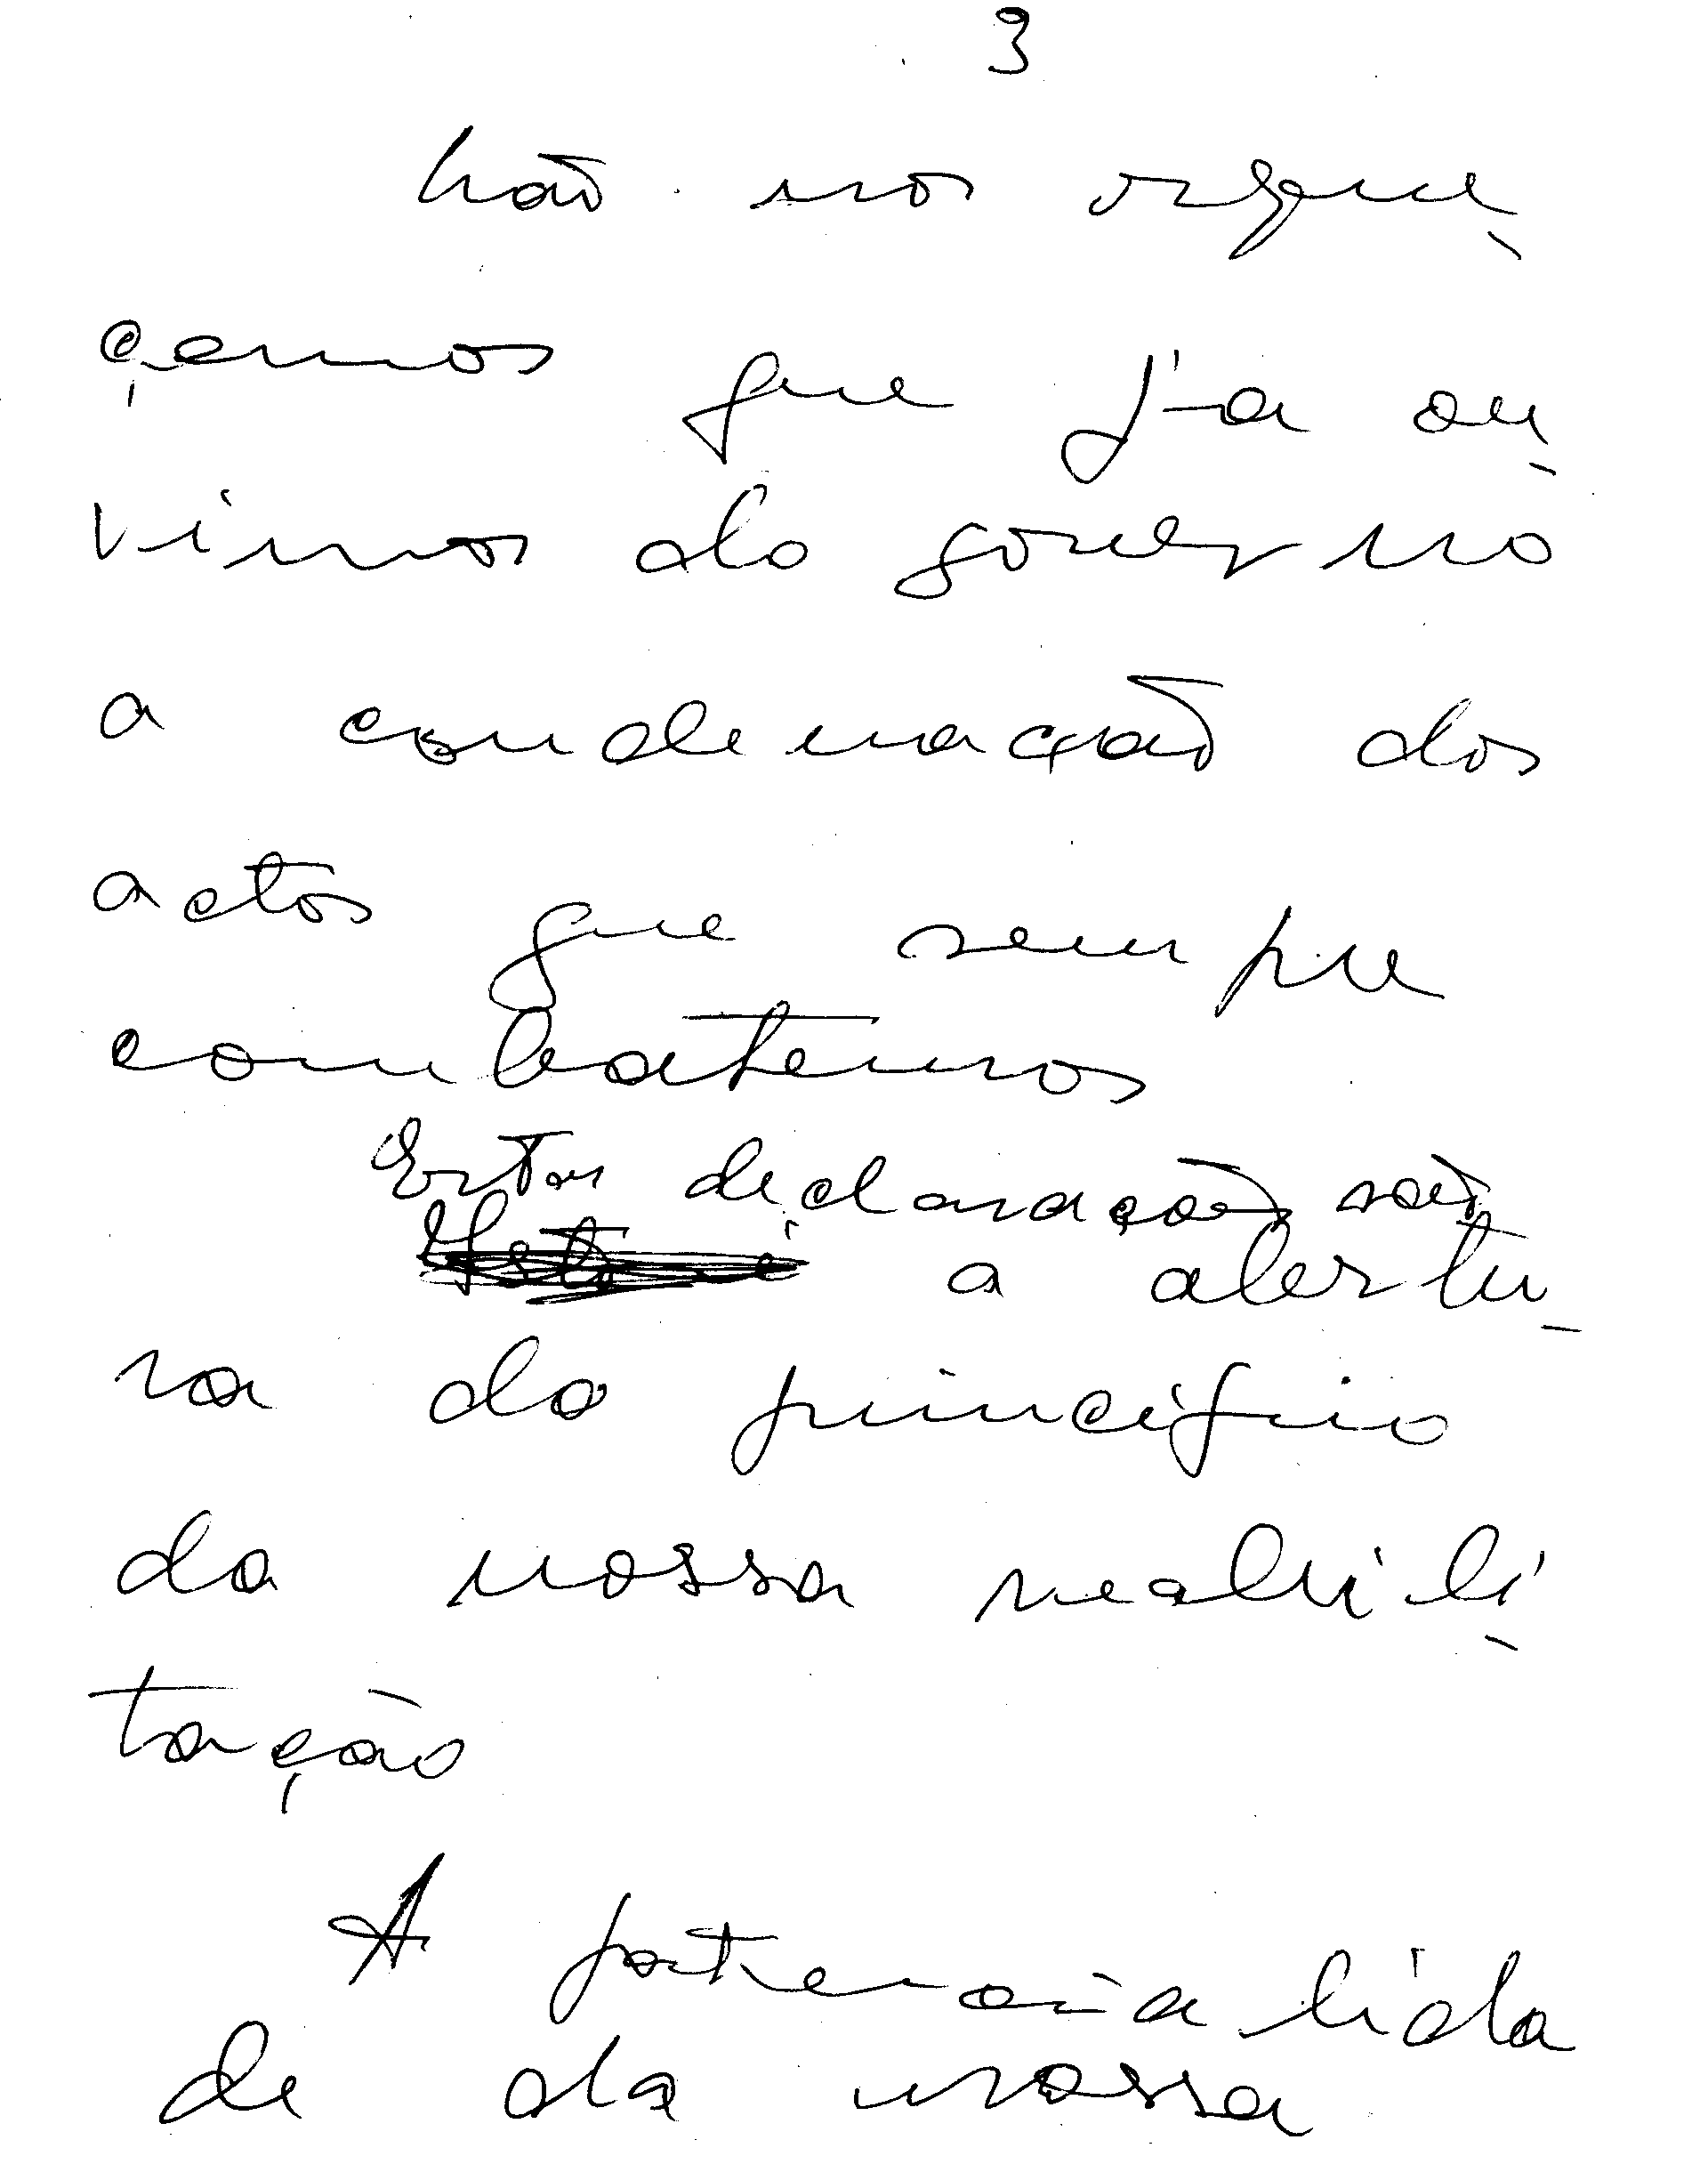 3
Não nos esque-
çamos que já ou-
vimos do governo
a condenação dos
actos que sempre
combatemos
Estas declarações são
a abertu-
ra do principio
da nossa reabili-
tação
A potencialida
de da nossa